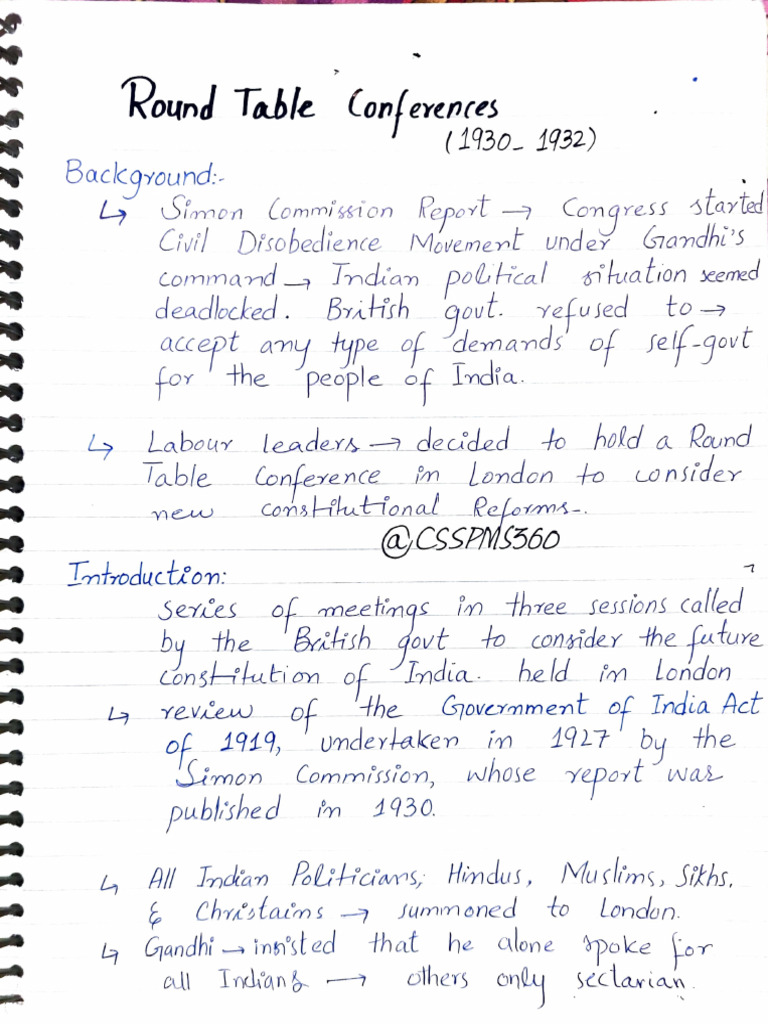 Round Table Conferences
(1930- 1932)
Background:-
↳ Simon Commission Report → Congress started
Civil Disobedience Movement under Gandhi's
command → Indian political situation seemed
deadlocked. British govt. refused to →
accept any type of demands of self-govt
for the people of India.
↳ Labour leaders → decided to hold a Round
Table Conference in London to consider
new constitutional Reforms-.
@CSSPMS360
Introduction:
series of meetings in three sessions called
by the British govt to consider the future
constitution of India. held in London
↳ review of the Government of India Act
of 1919, undertaken in 1927 by the
Simon Commission, whose report was
published in 1930.
↳ All Indian Politicians; Hindus, Muslims, Sikhs,
& Christains → summoned to London.
↳ Gandhi → insisted that he alone spoke for
all Indians → others only sectarian.